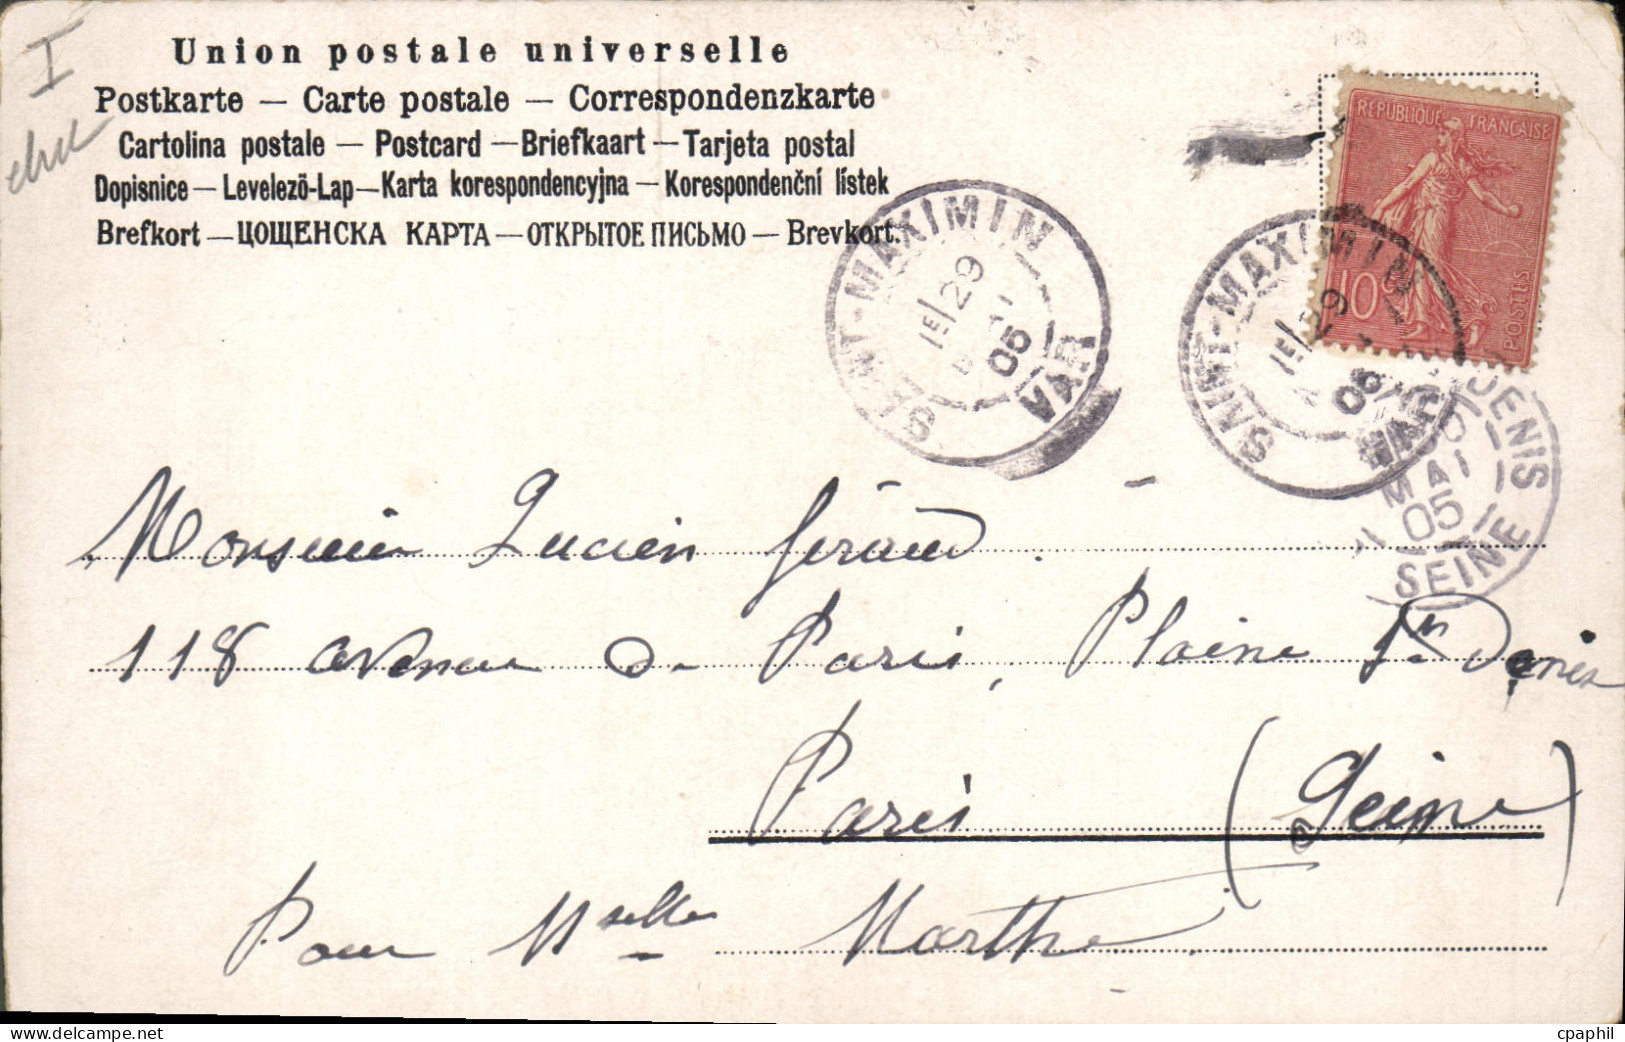 I
Union postale universelle
Postkarte — Carte postale — Correspondenzkarte
Cartolina postale — Postcard — Briefkaart — Tarjeta postal
Dopisnice — Levelezö-Lap — Karta korespondencyjna — Korespondenční lístek
Brefkort — ЦОЩЕНСКА КАРТА — ОТКРЫТОЕ ПИСЬМО — Brevkort.
REPUBLIQUE FRANÇAISE
10c
POSTES
SAINT-MAXIMIN
1E/29
05
VAR
SAINT-MAXIMIN
1E/29
05
VAR
DENIS
MAI
05
SEINE
Monsieur Lucien Géraud.
118 avenue de Paris, Plaine St Denis
Paris (Seine)
Pour Mselle Marthe
cpaphil